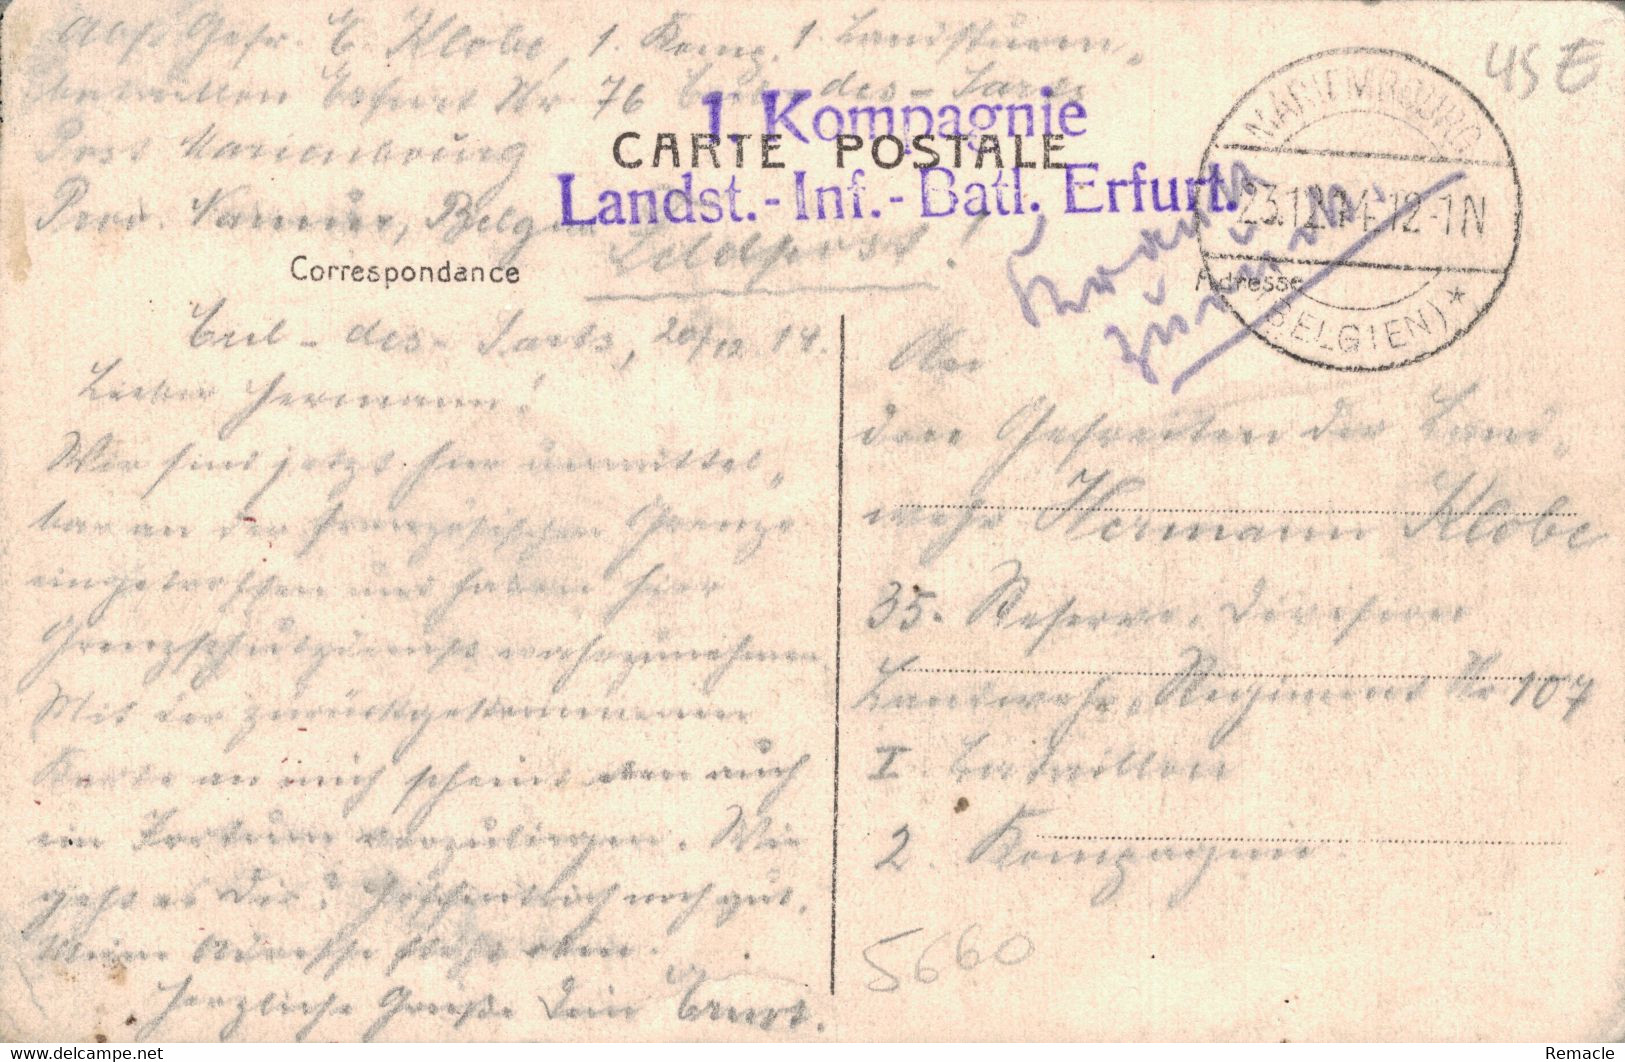 Abs. Gefr. E. Klobe, 1. Komp. 1. Landsturm-
bataillon Erfurt Nr 76 Cul-des-Sarts
Post Marienbourg
Prov. Namur, Belgien
1. Kompagnie
CARTE POSTALE
Landst.-Inf.-Batl. Erfurt.
Feldpost!
MARIEMBOURG
23.12.14.12-1N
(BELGIEN) *
45 E
zurück
Correspondance
Adresse
Cul-des-Sarts, 20/12 14.
Lieber Hermann!
Wir sind jetzt hier unmittel-
bar an der französischen Grenze
eingetroffen und haben hier
Grenzschutzdienst wahrzunehmen
Mit der zurückgekommenen
Karte an mich scheint den auch
ein Irrtum vorzuliegen. Wie
geht es Dir? Hoffentlich noch gut.
Meine Adresse steht oben.
Herzliche Grüße Dein Ernst.
An
den Gefreiten der Land-
wehr Hermann Klobe
35. Reserve-Division
Landwehr-Regiment Nr 107
I Bataillon
2. Kompagnie.
5660
delcampe.net
Remacle